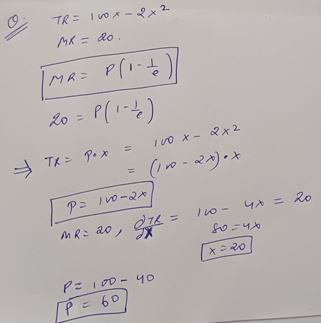 Q.
TR = 100x - 2x²
MR = 20.
MR = P(1 - 1/e)
20 = P(1 - 1/e)
⇒ TR = P·x = 100x - 2x²
= (100 - 2x)·x
P = 100 - 2x
MR = 20, ∂TR/∂x = 100 - 4x = 20
80 = 4x
x = 20
P = 100 - 40
P = 60